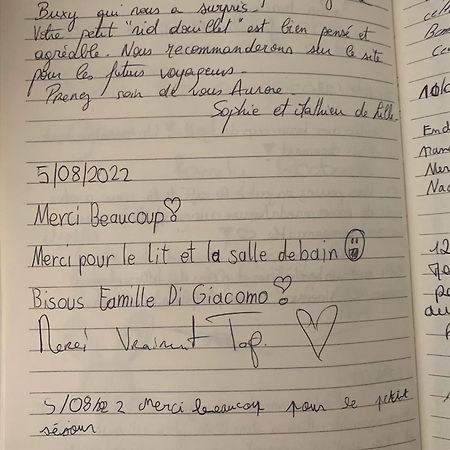 Buxy qui nous a surpris !
Votre petit "nid douillet" est bien pensé et
agréable. Nous recommanderons sur le site
pour les futurs voyageurs.
Prenez soin de vous Aurore.
Sophie et Mathieu de Lille
5/08/2022
Merci Beaucoup
Merci pour le lit et la salle de bain
Bisous Famille Di Giacomo
Merci Vraiment Top.
5/08/22 2 Merci beaucoup pour le petit
séjour